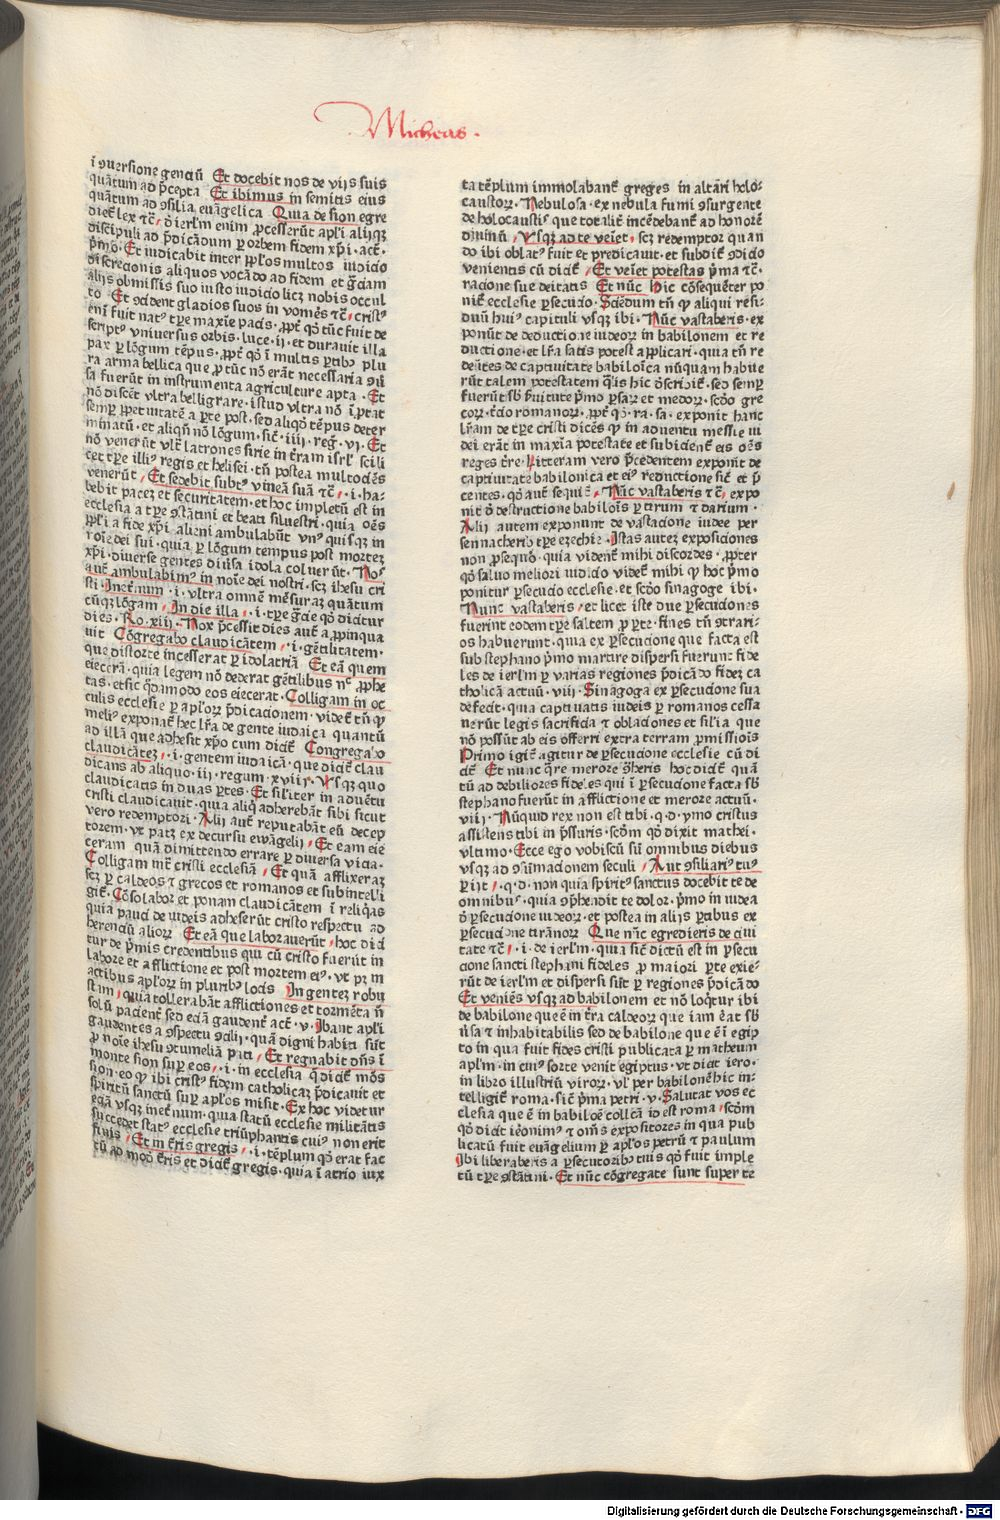 Micheas.
ī ꝯuersione genciū Et docebit nos de vijs suis
quātum ad p̄cepta Et ibimus in semitis eius
quātum ad ꝯsilia euāgelica Quia de sion egre
diet᷑ lex ⁊c̄
discipuli ad p̄dicādum ꝑ orbem fidem xp̄i . act̄ .
p̄mo . Et iudicabit inter ꝓpl'os multos iudicio
discrecionis aliquos vocādo ad fidem et gr̄am
alijs obmissis suo iusto iudicio licz nobis occul
to . Et ꝯcident gladios suos in vomēs ⁊c̄ cristꝰ
enī fuit natꝰ tꝑe maxie pacis . ꝓpt̄ qd̄ tūc fuit de
scriptꝰ vniuersus orbis . luce . ij . et durauit illa
pax ꝑ lōgum tēpus . ꝓpt̄ qd̄ ī multis ꝑtibꝰ plu
ra arma bellica que ꝓ tūc nō erāt necessaria
sa fuerūt in instrumenta agriculture apta . Et
nō discēt vltra belligrare . istud vltra nō īportat
semꝑ ꝑpetuitatē a ꝑte post . sed aliqd̄ tēpus deter
minatū . et aliqn̄ nō lōgum . sic̄ . iiij . reg̉ . vj . Et
nō venerūt vlt̄ latrones sirie in t̄ram isrl' scili
cet tꝑe illiꝰ regis et helisei . tn̄ postea multociēs
venerūt , Et sedebit subtꝰ vineā suā ⁊c̄ . i . ha-
bebit pacez et securitatem . et hoc impletū est in
ecclesia a tꝑe ꝯstātini et beati siluestri . quia oēs
ꝓpl'i a fide xp̄i alieni ambulabūt vnꝰ quisqz in
noīe dei sui . quia ꝑ lōgum tempus post mortez
xp̄i . diuerse gentes diu̓sa idola coluerūt . Nos
aut̄ ambulabimꝰ in noīe dei nostri . scz ihesu cri
sti . Inet̓num . i . vltra omnē mēsuraz quātum
cūqz lōgam , In die illa , . i . tꝑe gr̄e qd̄ dicitur
dies . Ro . xiij . Nox p̄cessit dies aut̄ appropinqua
uit Cōgregabo claudicātem , . i . gētilitatem .
que distorte incesserat ꝑ idolatriā Et eā quem
eieccrā . quia legem nō dederat gētilibus nc̄ ꝓphe
tas . et sic quodāmodo eos eiecerat . Colligam in oc
culis ecclesie ꝑ apl'orꝝ p̄dicacionem . videt᷑ tn̄ ꝙ
meliꝰ exponat᷑ hec lr̄a de gente iudaica quantū
ad illā que adhesit xp̄o cum dicit᷑ Congregabo
claudicātez , . i . gentem iudaicā . que dicit᷑ clau
dicans ab aliquo . iij . regum . xviij . Vsqz quo
claudicatis in duas ꝑtes . Et sil'iter in aduētu
cristi claudicauit . quia aliq̄ adherebāt sibi sicut
vero redemptori . Alij aut̄ reputabāt eū decep
torem . vt patz ex decursu ewāgelij , Et eam eie
ceram quā dimittendo errare ꝑ diuersa vicia .
Colligam mr̄ cristi ecclesiā , Et quā afflixeraz
scz ꝑ caldeos ⁊ grecos et romanos et subintell'i
git᷑ . Cōsolabor et ponam claudicātem ī reliq̄as
quia pauci de iudeis adheserūt cristo respectu ad
herenciū aliorꝝ Et eā que laborauerūt , hoc dici
tur de p̄mis credentibus qui cū cristo fuerūt in
labore et afflictione et post mortem eiꝰ . vt pz in
actibus apl'orꝝ in pluribꝰ locis In gentez robu
stam , quia tollerabāt afflictiones et tormēta nō
solū pacient᷑ sed eciā gaudent᷑ act̄ . v . Ibant apl'i
gaudentes a ꝯspectu ꝯcilij . quā digni habiti sūt
ꝓ noīe ihesu ꝯtumeliā pati , Et regnabit dn̄s ī
monte sion suꝑ eos , . i . in ecclesia q̄ dicit᷑ mōs
sion . eo ꝙ ibi cristꝰ fidem catholicaz p̄dicauit et
spiritū sanctū suꝑ apl'os misit . Ex hoc videtur
eciā vsqz inet̓num . quia statū ecclesie militātis
succedet statꝰ ecclesie triūphantis cuiꝰ non erit
finis , Et tu t̓ris gregis , . i . tēplum qd̄ erat fac
tū ad modū t̓ris et dicit᷑ gregis . quia ī atrio iux
ta tēplum immolabant᷑ greges in altari holo-
caustorꝝ . Nebulosa . ex nebula fumi ꝯsurgente
de holocaustis que totalit̓ incēdebant᷑ ad honorē
diuinū , Vsqz ad te veiet , scz redemptor quan
do ibi oblatꝰ fuit et predicauit . et subdit᷑ ꝯdicio
venientis cū dicit᷑ , Et veiet potestas p̄ma ⁊c̄ .
racione sue deitatis Et nūc Hic cōsequēter po
nit᷑ ecclesie ꝑsecucio . Sciēdum tn̄ ꝙ aliqui resi-
duū huiꝰ capituli vsqz ibi . Nūc vastaberis . ex
ponūt de deductione iudeorꝝ in babilonem et re
ductione . et lr̄a satis potest applicari . quia tn̄ re
deūtes de captiuitate babiloica nūquam habue
rūt talem potestatem q̄lis hic describit᷑ . sed semꝑ
fuerūt sb̄ s̓uitute p̄mo ꝑsarꝝ et medorꝝ . scd̄o gre
corꝝ . t̓cio romanorꝝ . ꝓpt̄ qd̄ . ra . sa . exponit hanc
lr̄am de tꝑe cristi dicēs ꝙ in aduentu messie iu
dei erāt in maxīa potestate et subicient᷑ eis oēs
reges t̓re . Litteram vero p̄cedentem exponit de
captiuitate babilonica et eiꝰ reductione sic̄ et p̄
centes . qd̄ aut̄ sequit᷑ , Nūc vastaberis ⁊c̄ , expo
nit d̄ destructione babilois ꝑ cirum ⁊ darium .
Alij autem exponunt de vastacione iudee per
sennacherib tꝑe ezechie . Istas autez exposiciones
non ꝓsequor . quia vident᷑ mihi discordes . ꝓpter
qd̄ saluo meliori iudicio videt᷑ mihi ꝙ hic p̄mo
ponitur ꝑsecucio ecclesie . et scd̄o sinagoge ibi .
Nunc vastaberis , et licet iste due ꝑsecuciones
fuerint eodem tꝑe saltem ꝓ ꝑte . fines tn̄ ꝯtrari-
os habuerunt . quia ex ꝑsecucione que facta est
sub stephano p̄mo martire dispersi fuerunt fide
les de ierl'm ꝑ varias regiones p̄dicādo fidez ca
tholicā actuū . viij . Sinagoga ex ꝑsecucione sua
defecit . quia captiuatis iudeis ꝑ romanos cessa
uerūt legis sacrificia ⁊ oblaciones et sil'ia que
nō possūt ab eis offerri extra terram ꝓmissiōis
Primo igit᷑ agitur de ꝑsecucione ecclesie cū di
cit᷑ Et nunc q̄re merore ꝯtheris hoc dicit᷑ quā
tū ad debiliores fideles qui ī ꝑsecucione facta sb̄
stephano fuerūt in afflictione et merore actuū .
viij . Nūquid rex non est tibi . q . d . ymo cristus
assistens tibi in p̄ssuris . scd̄m qd̄ dixit mathei .
vltimo . Ecce ego vobiscū sū omnibus diebus
vsqz ad ꝯsūmacionem seculi , Aut ꝯsiliariꝰ tuꝰ
ꝑijt , . q . d . non quia spiritꝰ sanctus docebit te de
omnibus . quia ꝯp̄hendit te dolor . p̄mo in iudea
d̄ ꝑsecucione iudeorꝝ . et postea in alijs ꝑtibus ex
ꝑsecucione tirānorꝝ Que nūc egredieris de ciui
tate ⁊c̄ , . i . de ierl'm . quia sic̄ dictū est in ꝑsecu
cione sancti stephani fideles ꝓ maiori ꝑte exie-
rūt de ierl'm et dispersi sūt ꝑ regiones p̄dicādo
Et veniēs vsqz ad babilonem et nō loq̄tur ibi
de babilone que ē in t̓ra caldeorꝝ que iam erat sb̄
u̓sa ⁊ inhabitabilis sed de babilone que ē ī egip
to in qua fuit fides cristi publicata ꝑ matheum
apl'm . in cuiꝰ sorte venit egiptus . vt dicit iero .
in libro illustriū virorꝝ . vl' per babilonē hic in-
telligit᷑ roma . sic̄ p̄ma petri . v . Salutat vos ec
clesia que ē in babiloē collcā id est roma , scd̄m
qd̄ dicit ieronimꝰ ⁊ oms̄ expositores in qua pub
licatū fuit euāgelium ꝑ apl'os petrū ⁊ paulum
Ibi liberaberis a ꝑsecutoribꝰ tuis qd̄ fuit imple
tū tꝑe ꝯstātini . Et nūc cōgregate sunt super te
Digitalisierung gefördert durch die Deutsche Forschungsgemeinschaft - DFG